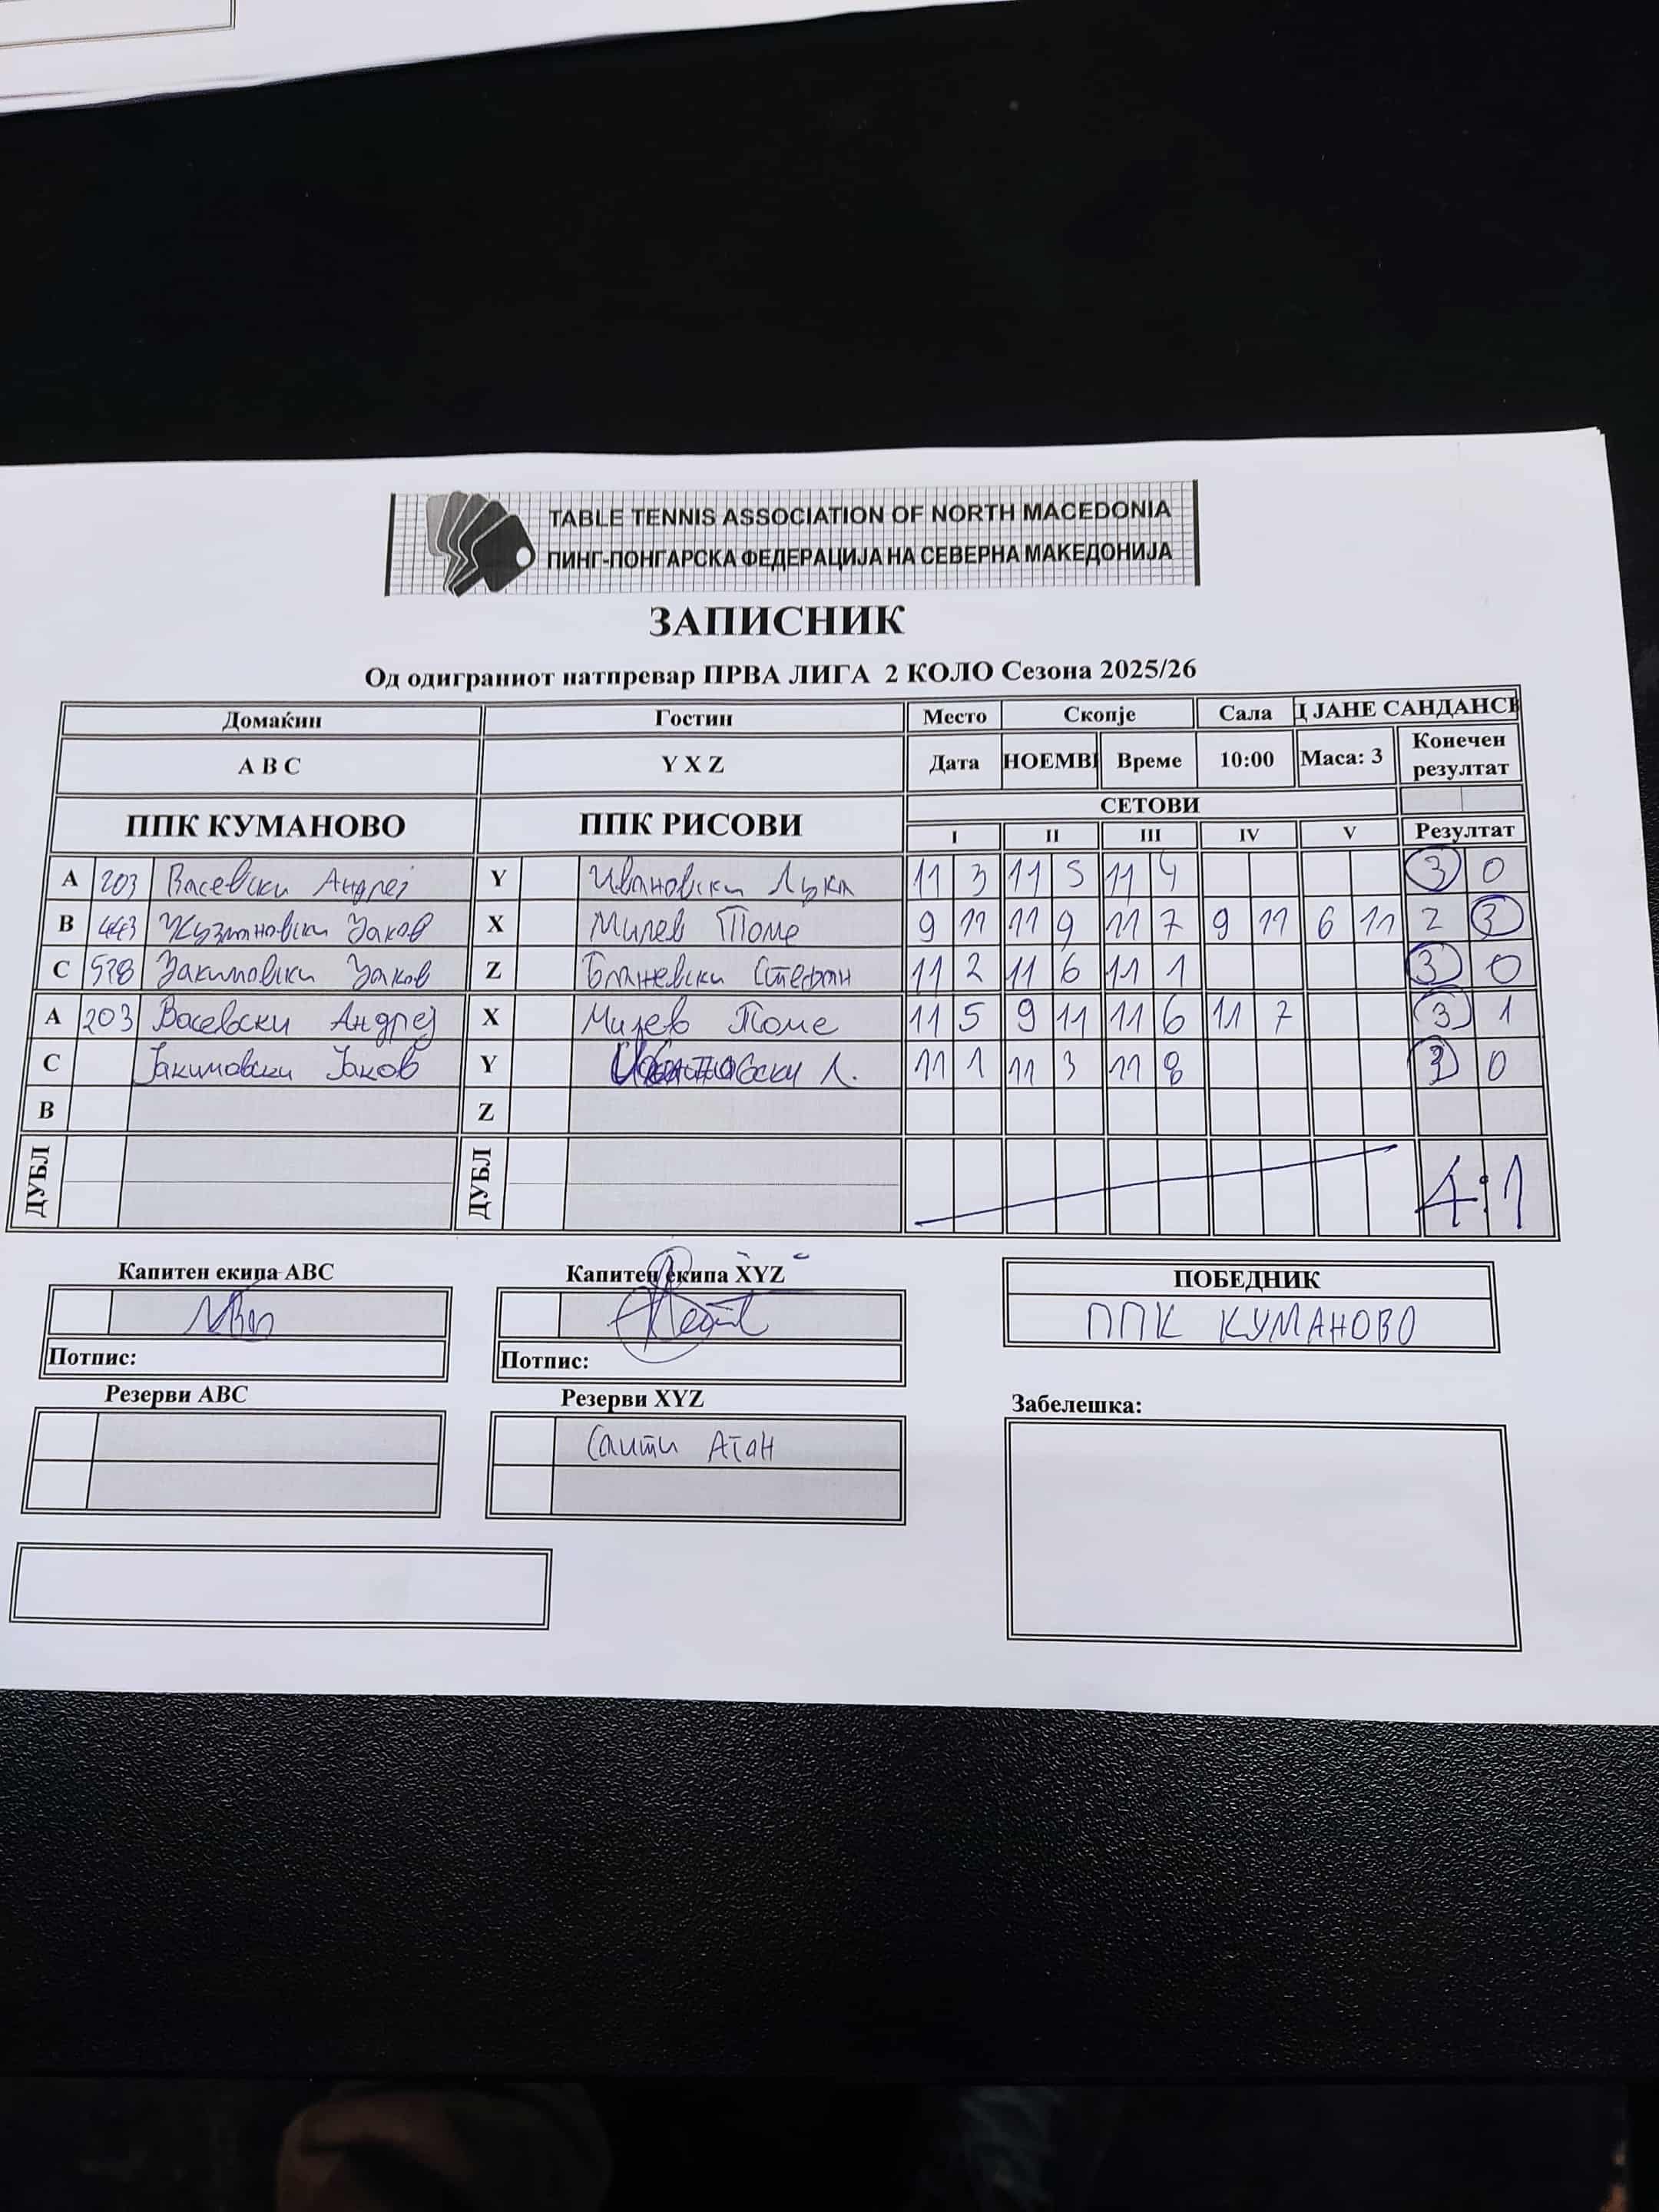 TABLE TENNIS ASSOCIATION OF NORTH MACEDONIA
ПИНГ-ПОНГАРСКА ФЕДЕРАЦИЈА НА СЕВЕРНА МАКЕДОНИЈА
ЗАПИСНИК
Од одиграниот натпревар ПРВА ЛИГА 2 КОЛО Сезона 2025/26
Домаќин Гостин Место Скопје Сала Ц ЈАНЕ САНДАНСК
A B C Y X Z Дата НОЕМВР Време 10:00 Маса: 3 Конечен резултат
ППК КУМАНОВО ППК РИСОВИ СЕТОВИ
I II III IV V Резултат
A 203 Васевски Андреј Y Ивановски Лука 11 3 11 5 11 4 3 0
B 443 Кузмановски Јаков X Милев Томе 9 11 11 9 11 7 9 11 6 11 2 3
C 528 Јакимовски Јаков Z Блажевски Стефан 11 2 11 6 11 1 3 0
A 203 Васевски Андреј X Милев Томе 11 5 9 11 11 6 11 7 3 1
C Јакимовски Јаков Y Ивановски Л. 11 1 11 3 11 8 3 0
B Z
ДУБЛ ДУБЛ 4:1
Капитен екипа ABC Капитен екипа XYZ ПОБЕДНИК
ППК КУМАНОВО
Потпис: Потпис:
Резерви ABC Резерви XYZ Забелешка:
Саити Атан